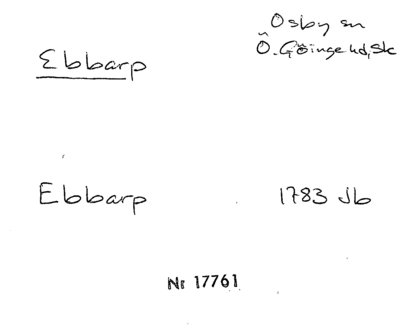 Osby sn
Ebbarp
Ö. Göinge hd, Sk
Ebbarp 1783 Jb
Nr 17761